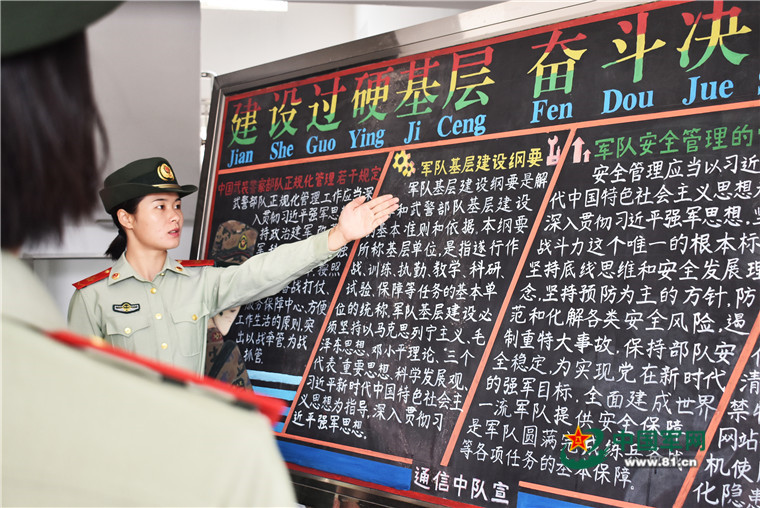 建设过硬基层 奋斗决
Jian She Guo Ying Ji Ceng Fen Dou Jue
中国武装警察部队正规化管理若干规定
武警部队正规化管理工作应当深
入贯彻习近平强军思
持政治建军
照
打仗、
服务保障中心、方便
工作生活的原则,突出
以战领管、为战
抓管.
军队基层建设纲要
军队基层建设纲要是解
和武警部队基层建设
的基本准则和依据.本纲要
所称基层单位,是指遂行作
战、训练、执勤、教学、科研、
试验、保障等任务的基本单
位的统称.军队基层建设必
须坚持以马克思列宁主义、毛
泽东思想、邓小平理论、三个
代表、重要思想、科学发展观、
习近平新时代中国特色社会主
义思想为指导,深入贯彻习
近平强军思想.
军队安全管理的
安全管理应当以习近
代中国特色社会主义思想为
深入贯彻习近平强军思想,坚
战斗力这个唯一的根本标
坚持底线思维和安全发展理
念,坚持预防为主的方针,防
范和化解各类安全风险,遏
制重特大事故,保持部队安
全稳定,为实现党在新时代
的强军目标,全面建成世界
一流军队提供安全保障,
是军队圆满完成
等各项任务的基本保障
清
禁
网站
机使
化隐患
通信中队宣
中国军网
www.81.cn